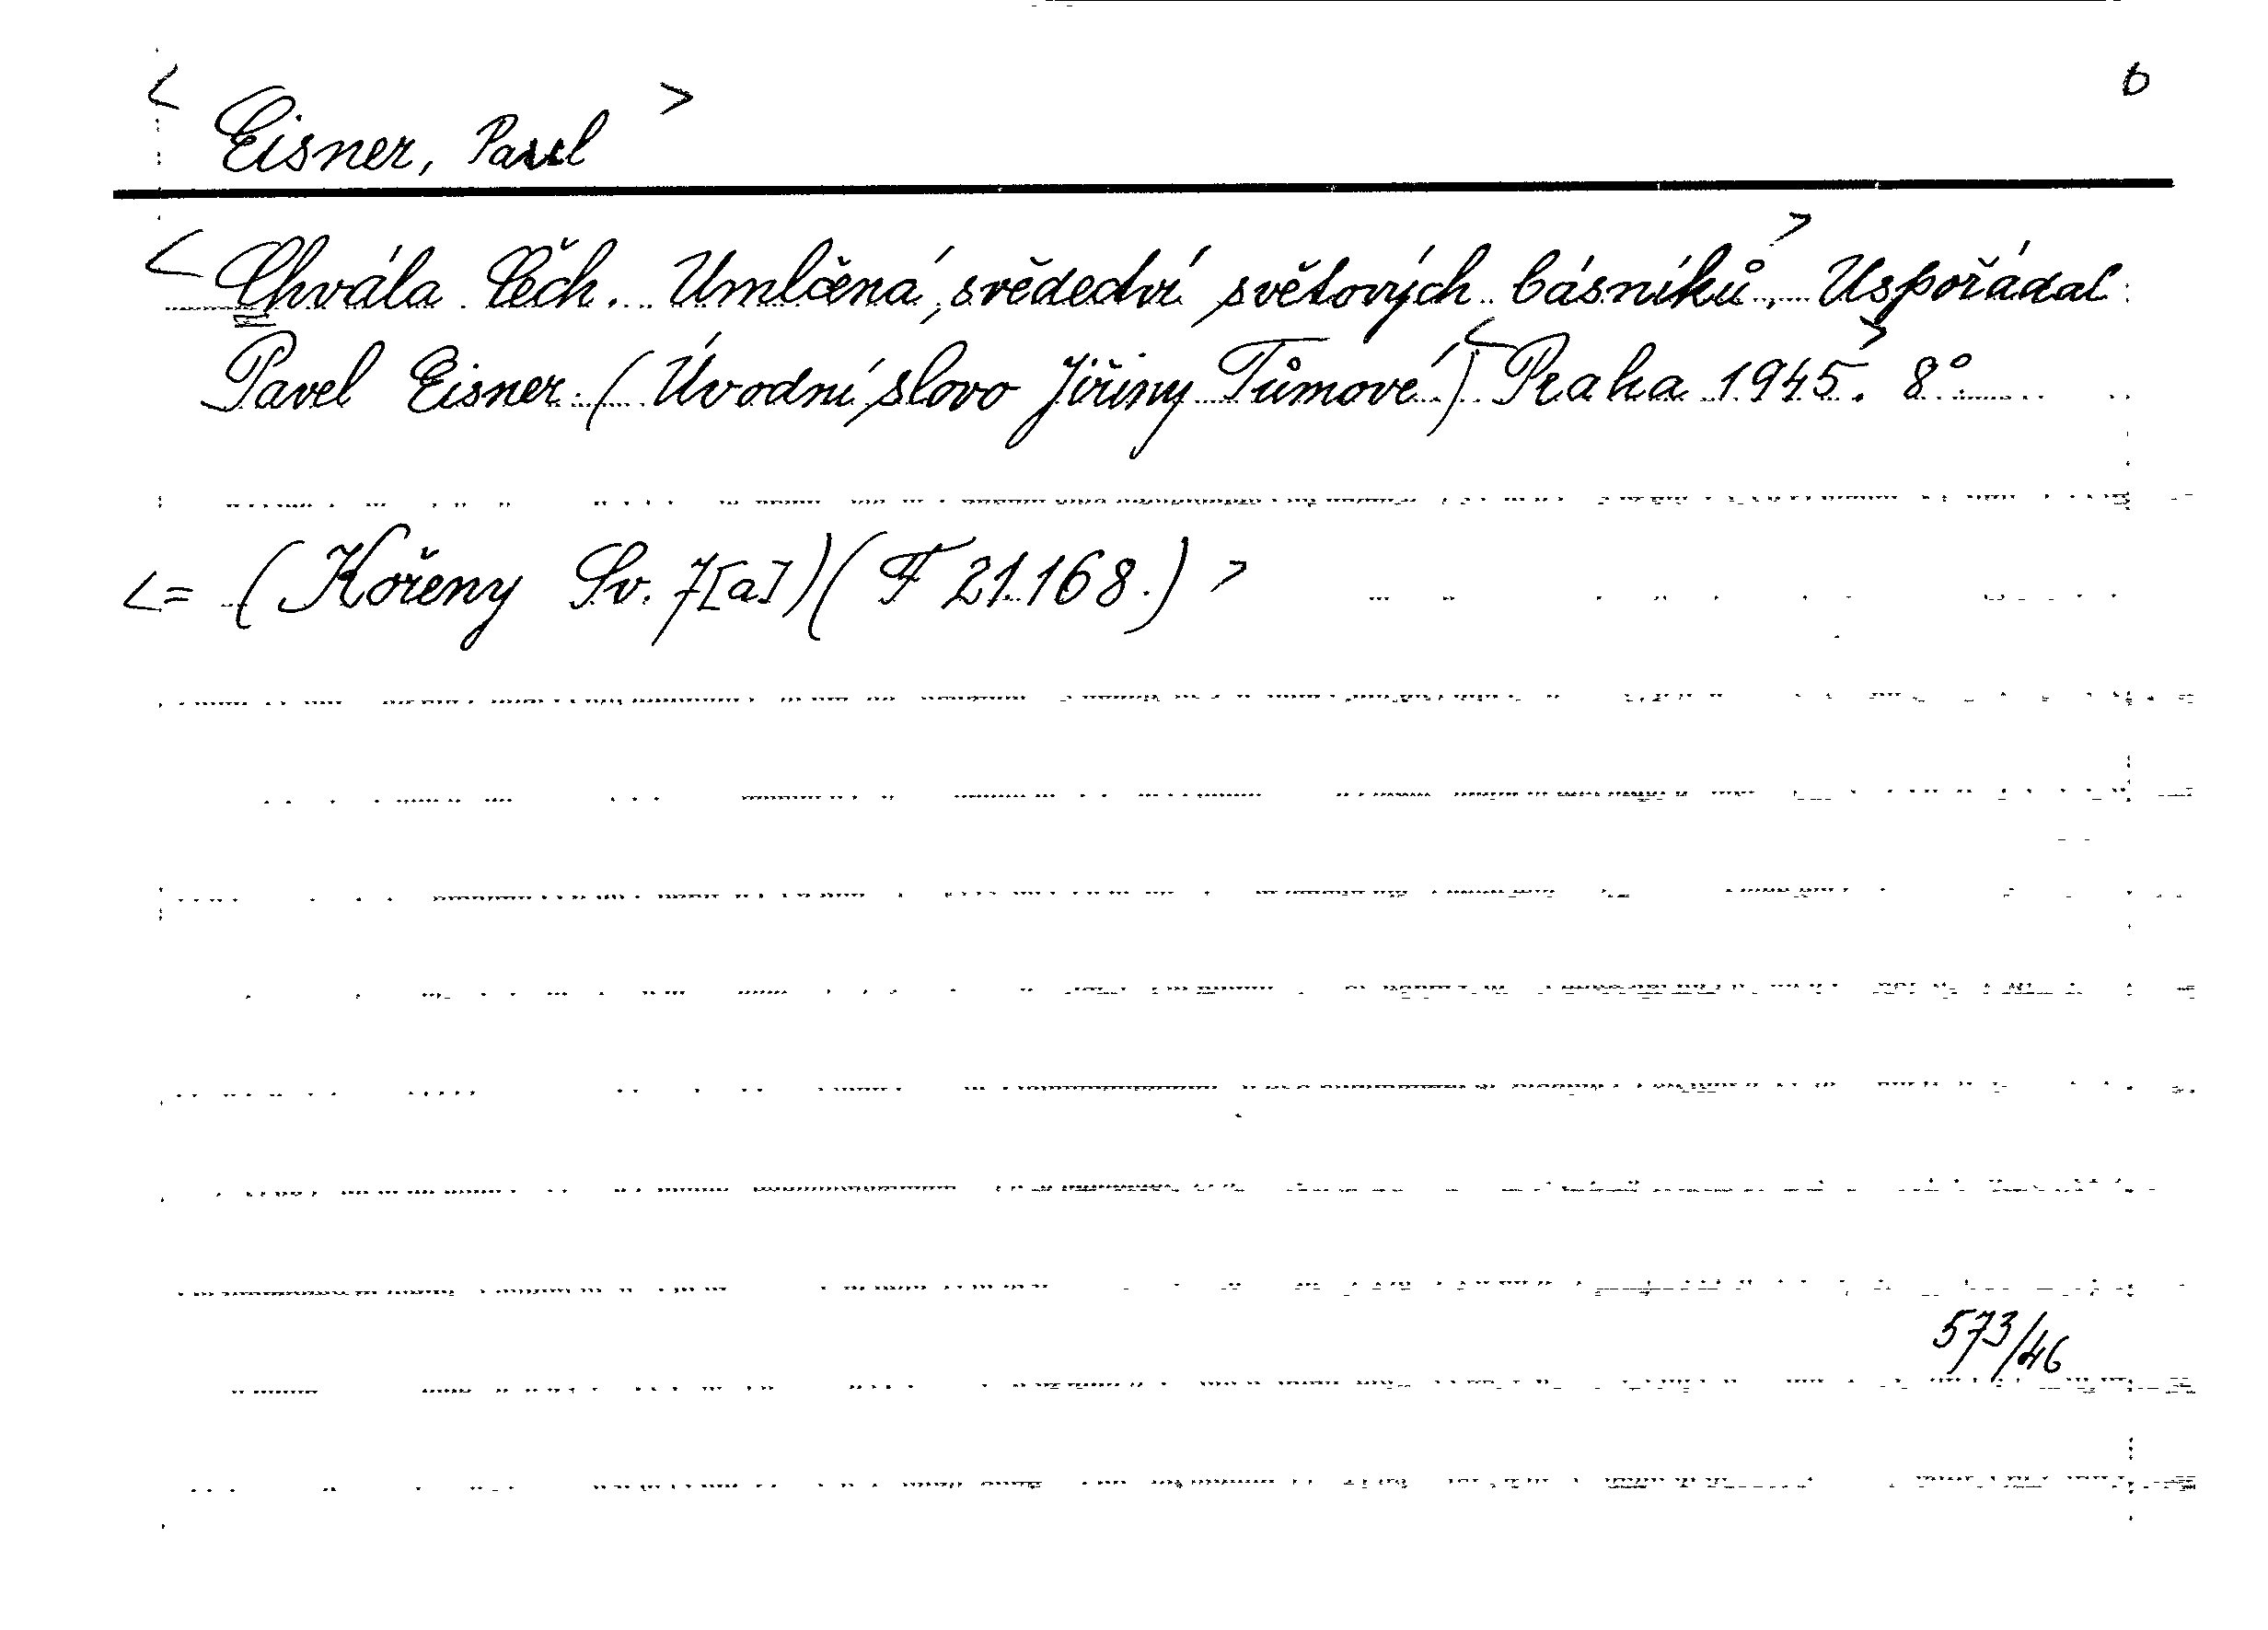 < Eisner, Pavel > 6
< Chvála Čech. Umlčená svědectví světových básníků.> Uspořádal
Pavel Eisner. (Úvodní slovo Jiřiny Tůmové.) < Praha 1945.> 8°.
<= (Kořeny Sv. 7[a]) (F 21.168.) >
573/46